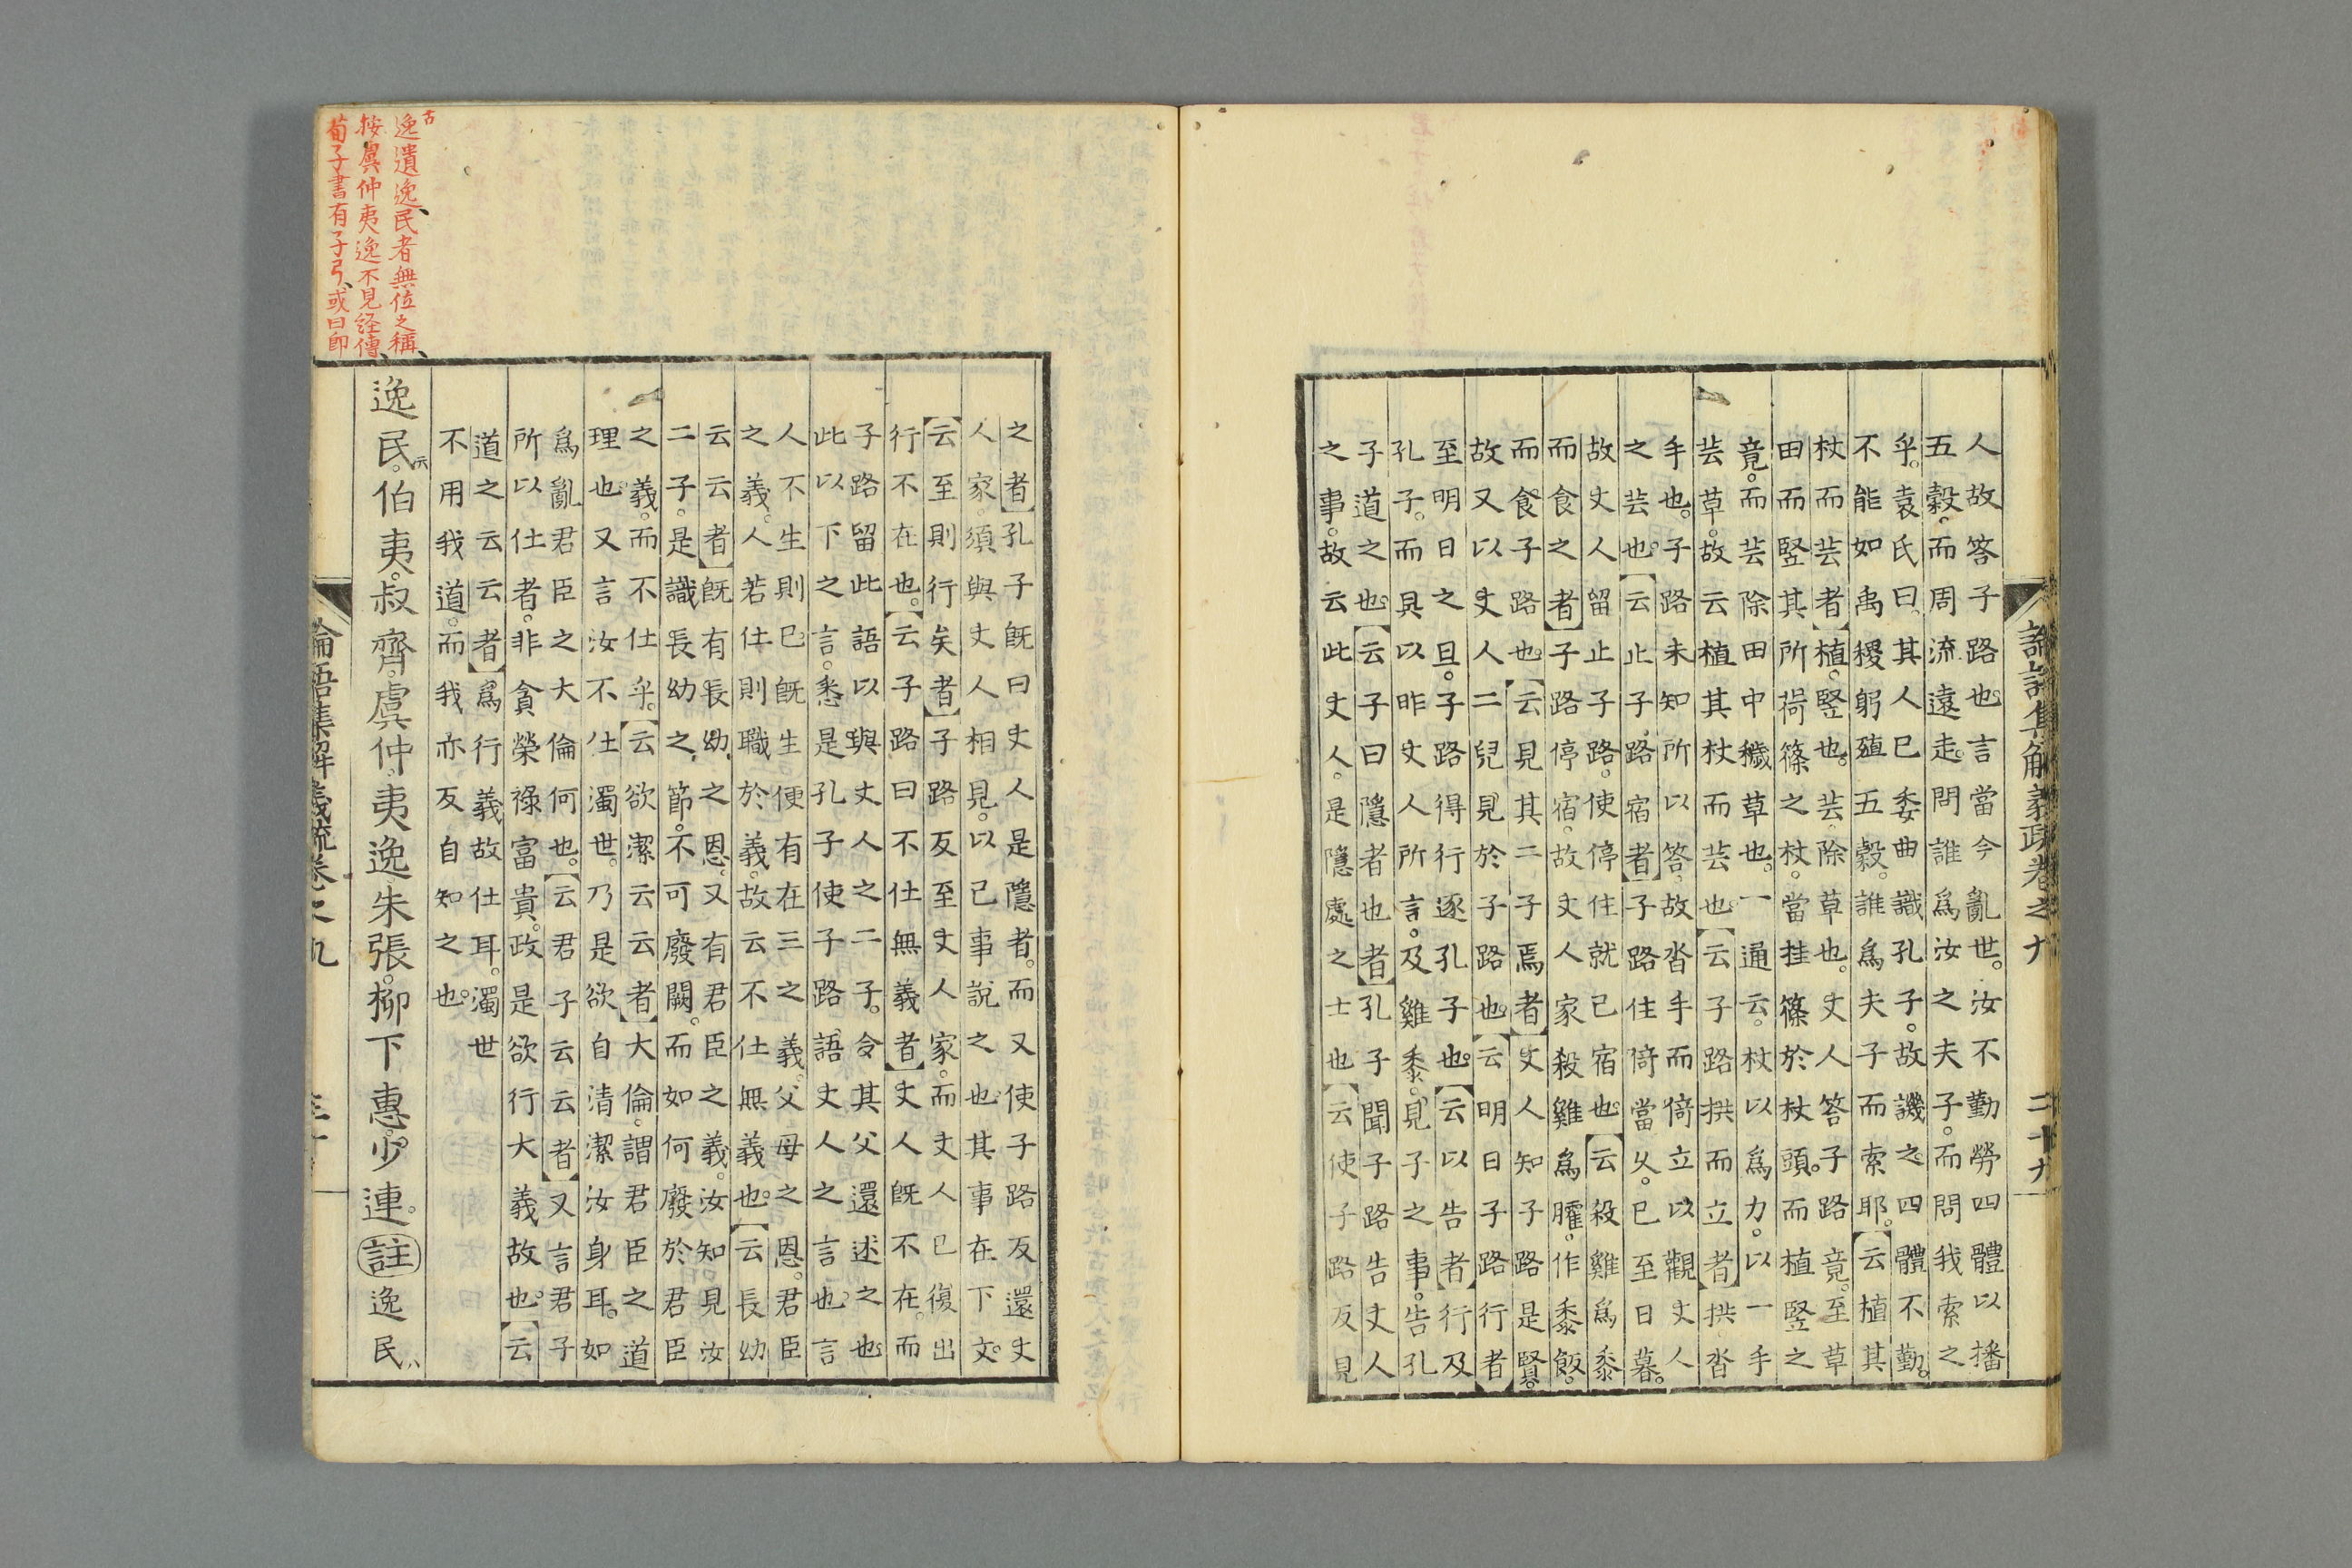 論語集解義疏卷之九 二十九
人故答子路也。言當今亂世。汝不勤勞四體以播
五穀。而周流遠走。問誰爲汝之夫子。而問我索之
乎。袁氏曰。其人已委曲識孔子。故譏之。四體不勤。
不能如禹稷躬殖五穀。誰爲夫子而索耶。【云植其
杖而芸者】植。竪也。芸。除草也。丈人答子路竟。至草
田而竪其所荷篠之杖。當挂篠於杖頭。而植竪之
竟。而芸除田中穢草也。一通云。杖以爲力。以一手
芸草。故云植其杖而芸也。【云子路拱而立者】拱。沓
手也。子路未知所以答。故沓手而倚立以觀丈人
之芸也。【云止子路宿者】子路住倚當久。已至日暮。
故丈人留止子路。使停住就已宿也。【云殺雞爲黍
而食之者】子路停宿。故丈人家殺雞爲臛。作黍飯。
而食子路也。【云見其二子焉者】丈人知子路是賢。
故又以丈人二兒見於子路也。【云明日子路行者】
至明日之旦。子路得行逐孔子也。【云以告者】行及
孔子。而具以昨丈人所言。及雞黍。見子之事。告孔
子道之也。【云子曰隱者也者】孔子聞子路告丈人
之事。故云此丈人。是隱處之士也【云使子路反見
之者】孔子既曰丈人是隱者。而又使子路反還丈
人家。須與丈人相見。以已事說之也。其事在下文。
【云至則行矣者】子路反至丈人家。而丈人已復出
行不在也。【云子路曰不仕無義者】丈人既不在。而
子路留此語以與丈人之二子。令其父還述之也。
此以下之言。悉是孔子使子路語丈人之言也。言
人不生則已既生便有在三之義。父母之恩。君臣
之義。人若仕則職於義。故云不仕無義也。【云長幼
云云者】既有長幼之恩。又有君臣之義。汝知見汝
二子。是識長幼之節。不可廢闕。而如何廢於君臣
之義。而不仕乎。【云欲潔云云者】大倫。謂君臣之道
理也。又言汝不仕濁世。乃是欲自清潔汝身耳。如
爲亂君臣之大倫何也。【云君子云云者】又言君子
所以仕者。非貪榮祿富貴。政是欲行大義故也。【云
道之云云者】爲行義故仕耳。濁世
不用我道。而我亦反自知之也。
逸民。伯夷。叔齊。虞仲。夷逸。朱張。柳下惠。少連。註逸民
論語集解義疏卷之九 三十
古
逸遺逸民者無位之稱
按虞仲夷逸不見経傳
荀子書有子弓或曰即